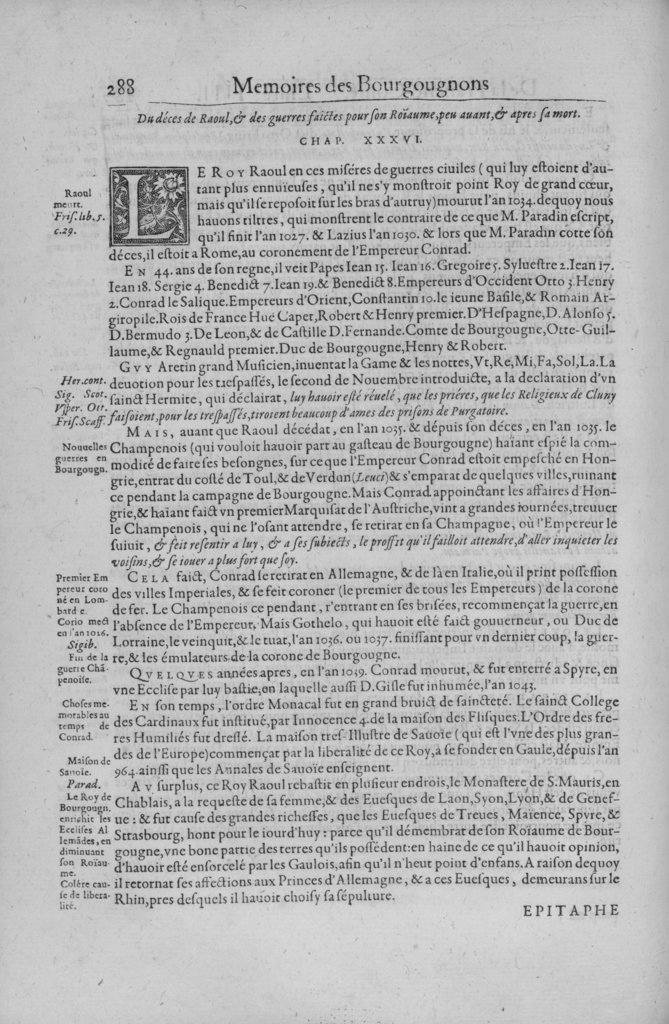 288 Memoires des Bourgougnons
Du déces de Raoul, & des guerres faictes pour son Roïaume, peu auant, & apres sa mort.
CHAP. XXXVI.
LE ROY Raoul en ces miséres de guerres ciuiles ( qui luy estoient d'au-
tant plus ennuïeuses, qu'il ne s'y monstroit point Roy de grand cœur,
mais qu'il se reposoit sur les bras d'autruy) mourut l'an 1034. dequoy nous
hauons tiltres, qui monstrent le contraire de ce que M. Paradin escript,
qu'il finit l'an 1027. & Lazius l'an 1030. & lors que M. Paradin cotte son
déces, il estoit a Rome, au coronement de l'Empereur Conrad.
Raoul
meurt.
Fris. lib. 5.
c. 29.
EN 44. ans de son regne, il veit Papes Iean 15. Iean 16. Gregoire 5. Syluestre 2. Iean 17.
Iean 18. Sergie 4. Benedict 7. Iean 19. & Benedict 8. Empereurs d'Occident Otto 3. Henry
2. Conrad le Salique. Empereurs d'Orient, Constantin 10. le ieune Basile, & Romain Ar-
giropile. Rois de France Hue Capet, Robert & Henry premier. D'Hespagne, D. Alonso 5.
D. Bermudo 3. De Leon, & de Castille D. Fernande. Comte de Bourgougne, Otte-Guil-
laume, & Regnauld premier. Duc de Bourgougne, Henry & Robert.
GVY Aretin grand Musicien, inuentat la Game & les nottes, Vt, Re, Mi, Fa, Sol, La. La
deuotion pour les trespassés, le second de Nouembre introduicte, a la declaration d'vn
sainct Hermite, qui déclairat, luy hauoir esté réuelé, que les priéres, que les Religieux de Cluny
faisoient, pour les trespassés, tiroient beaucoup d'ames des prisons de Purgatoire.
Her. cont.
Sig. Scot.
Vsper. Ott.
Fris. Scaff.
MAIS, auant que Raoul décédat, en l'an 1035. & dépuis son déces, en l'an 1035. le
Champenois (qui vouloit hauoir part au gasteau de Bourgougne) haïant espié la com-
modité de faire ses besongnes, sur ce que l'Empereur Conrad estoit empesché en Hon-
grie, entrat du costé de Toul, & de Verdun (Leuci) & s'emparat de quelques villes, ruinant
ce pendant la campagne de Bourgougne. Mais Conrad appoinctant les affaires d'Hon-
grie, & haïant faict vn premier Marquisat de l'Austriche, vint a grandes iournées, treuuer
le Champenois, qui ne l'osant attendre, se retirat en sa Champagne, où l'Empereur le
suiuit, & feit resentir a luy, & a ses subiects, le proffit qu'il failloit attendre, d'aller inquieter les
voisins, & se iouer a plus fort que soy.
Nouuelles
guerres en
Bourgougn.
CELA faict, Conrad se retirat en Allemagne, & de là en Italie, où il print possession
des villes Imperiales, & se feit coroner (le premier de tous les Empereurs) de la corone
de fer. Le Champenois ce pendant, r'entrant en ses brisées, recommençat la guerre, en
l'absence de l'Empereur, Mais Gothelo, qui hauoit esté faict gouuerneur, ou Duc de
Lorraine, le veinquit, & le tuat, l'an 1036. ou 1037. finissant pour vn dernier coup, la guer-
re, & les émulateurs de la corone de Bourgougne.
Premier Em
pereur coro
né en Lom-
bardie.
Corio mect
en l'an 1026.
Sigib.
Fin de la
guerre Chã-
penoise.
QVELQVES années apres, en l'an 1039. Conrad mourut, & fut enterré a Spyre, en
vne Ecclise par luy bastie, en laquelle aussi D. Gisle fut inhumée, l'an 1043.
EN son temps, l'ordre Monacal fut en grand bruict de saincteté. Le sainct College
des Cardinaux fut institué, par Innocence 4. de la maison des Flisques. L'Ordre des fre-
res Humiliés fut dressé. La maison tres-Illustre de Sauoïe ( qui est l'vne des plus gran-
des de l'Europe) commençat par la liberalité de ce Roy, a se fonder en Gaule, dépuis l'an
964. ainssi que les Annales de Sauoïe enseignent.
Choses me-
morables au
temps de
Conrad.
Maison de
Sauoie.
Parad.
AV surplus, ce Roy Raoul rebastit en plusieur endrois, le Monastere de S. Mauris, en
Chablais, a la requeste de sa femme, & des Euesques de Laon, Syon, Lyon, & de Genef-
ue : & fut cause des grandes richesses, que les Euesques de Treues, Maïence, Spyre, &
Strasbourg, hont pour le iourd'huy : parce qu'il démembrat de son Roïaume de Bour-
gougne, vne bone partie des terres qu'ils possédent: en haine de ce qu'il hauoit opinion,
d'hauoir esté ensorcelé par les Gaulois, afin qu'il n'heut point d'enfans. A raison dequoy
il retornat ses affections aux Princes d'Allemagne, & a ces Euesques, demeurans sur le
Rhin, pres desquels il hauoit choisy sa sépulture.
Le Roy de
Bourgougn.
enrichit les
Ecclises Al
lemãdes, en
diminuant
son Roïau-
me.
Colére cau-
se de libera-
lité.
EPITAPHE